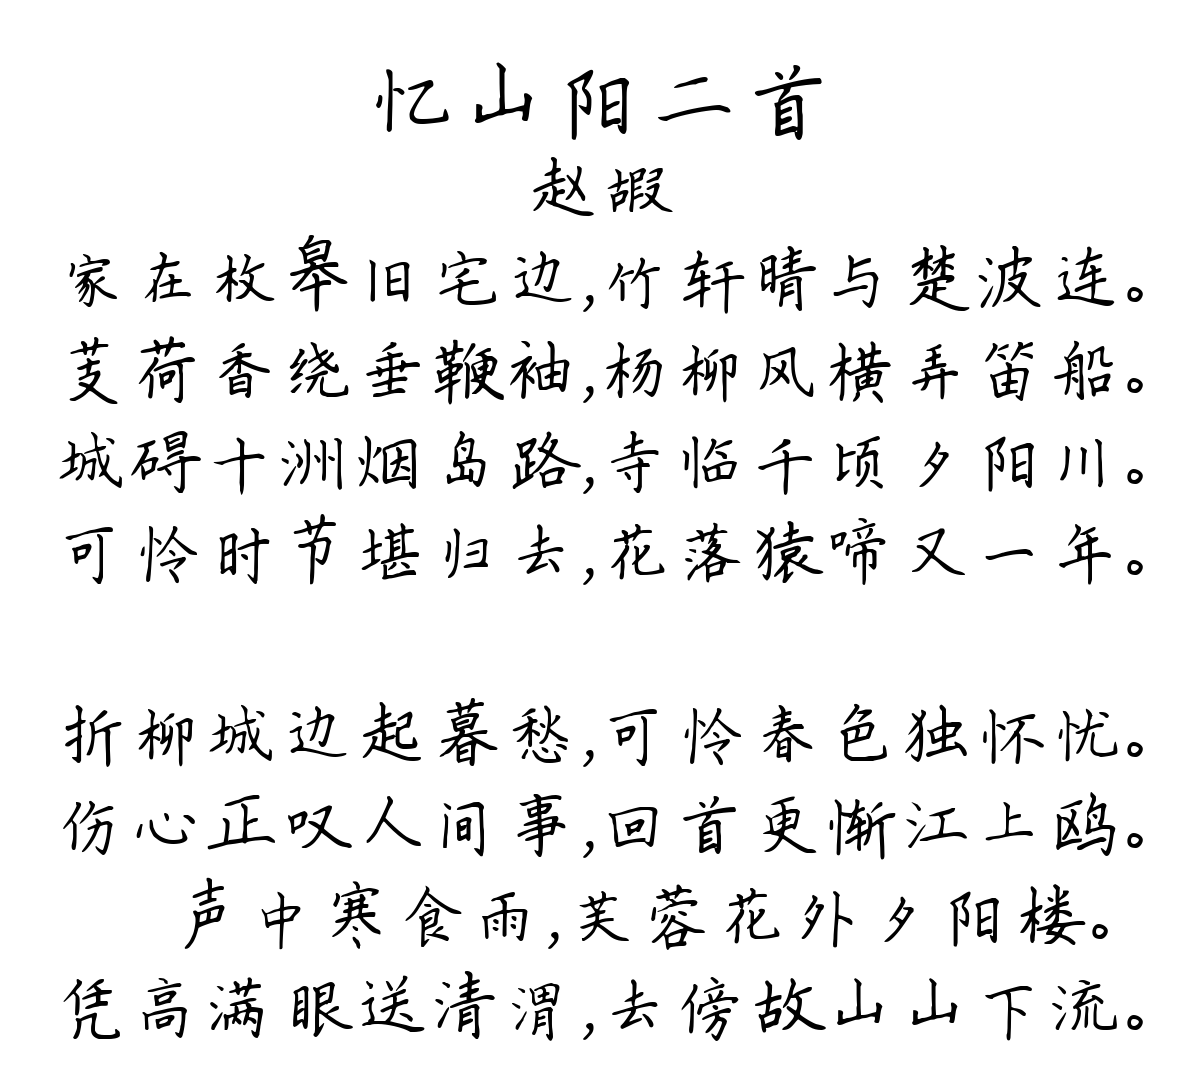 忆山阳二首
赵嘏
家在枚皋旧宅边,竹轩晴与楚波连。
芰荷香绕垂鞭袖,杨柳风横弄笛船。
城碍十洲烟岛路,寺临千顷夕阳川。
可怜时节堪归去,花落猿啼又一年。
折柳城边起暮愁,可怜春色独怀忧。
伤心正叹人间事,回首更惭江上鸥。
声中寒食雨,芙蓉花外夕阳楼。
凭高满眼送清渭,去傍故山山下流。